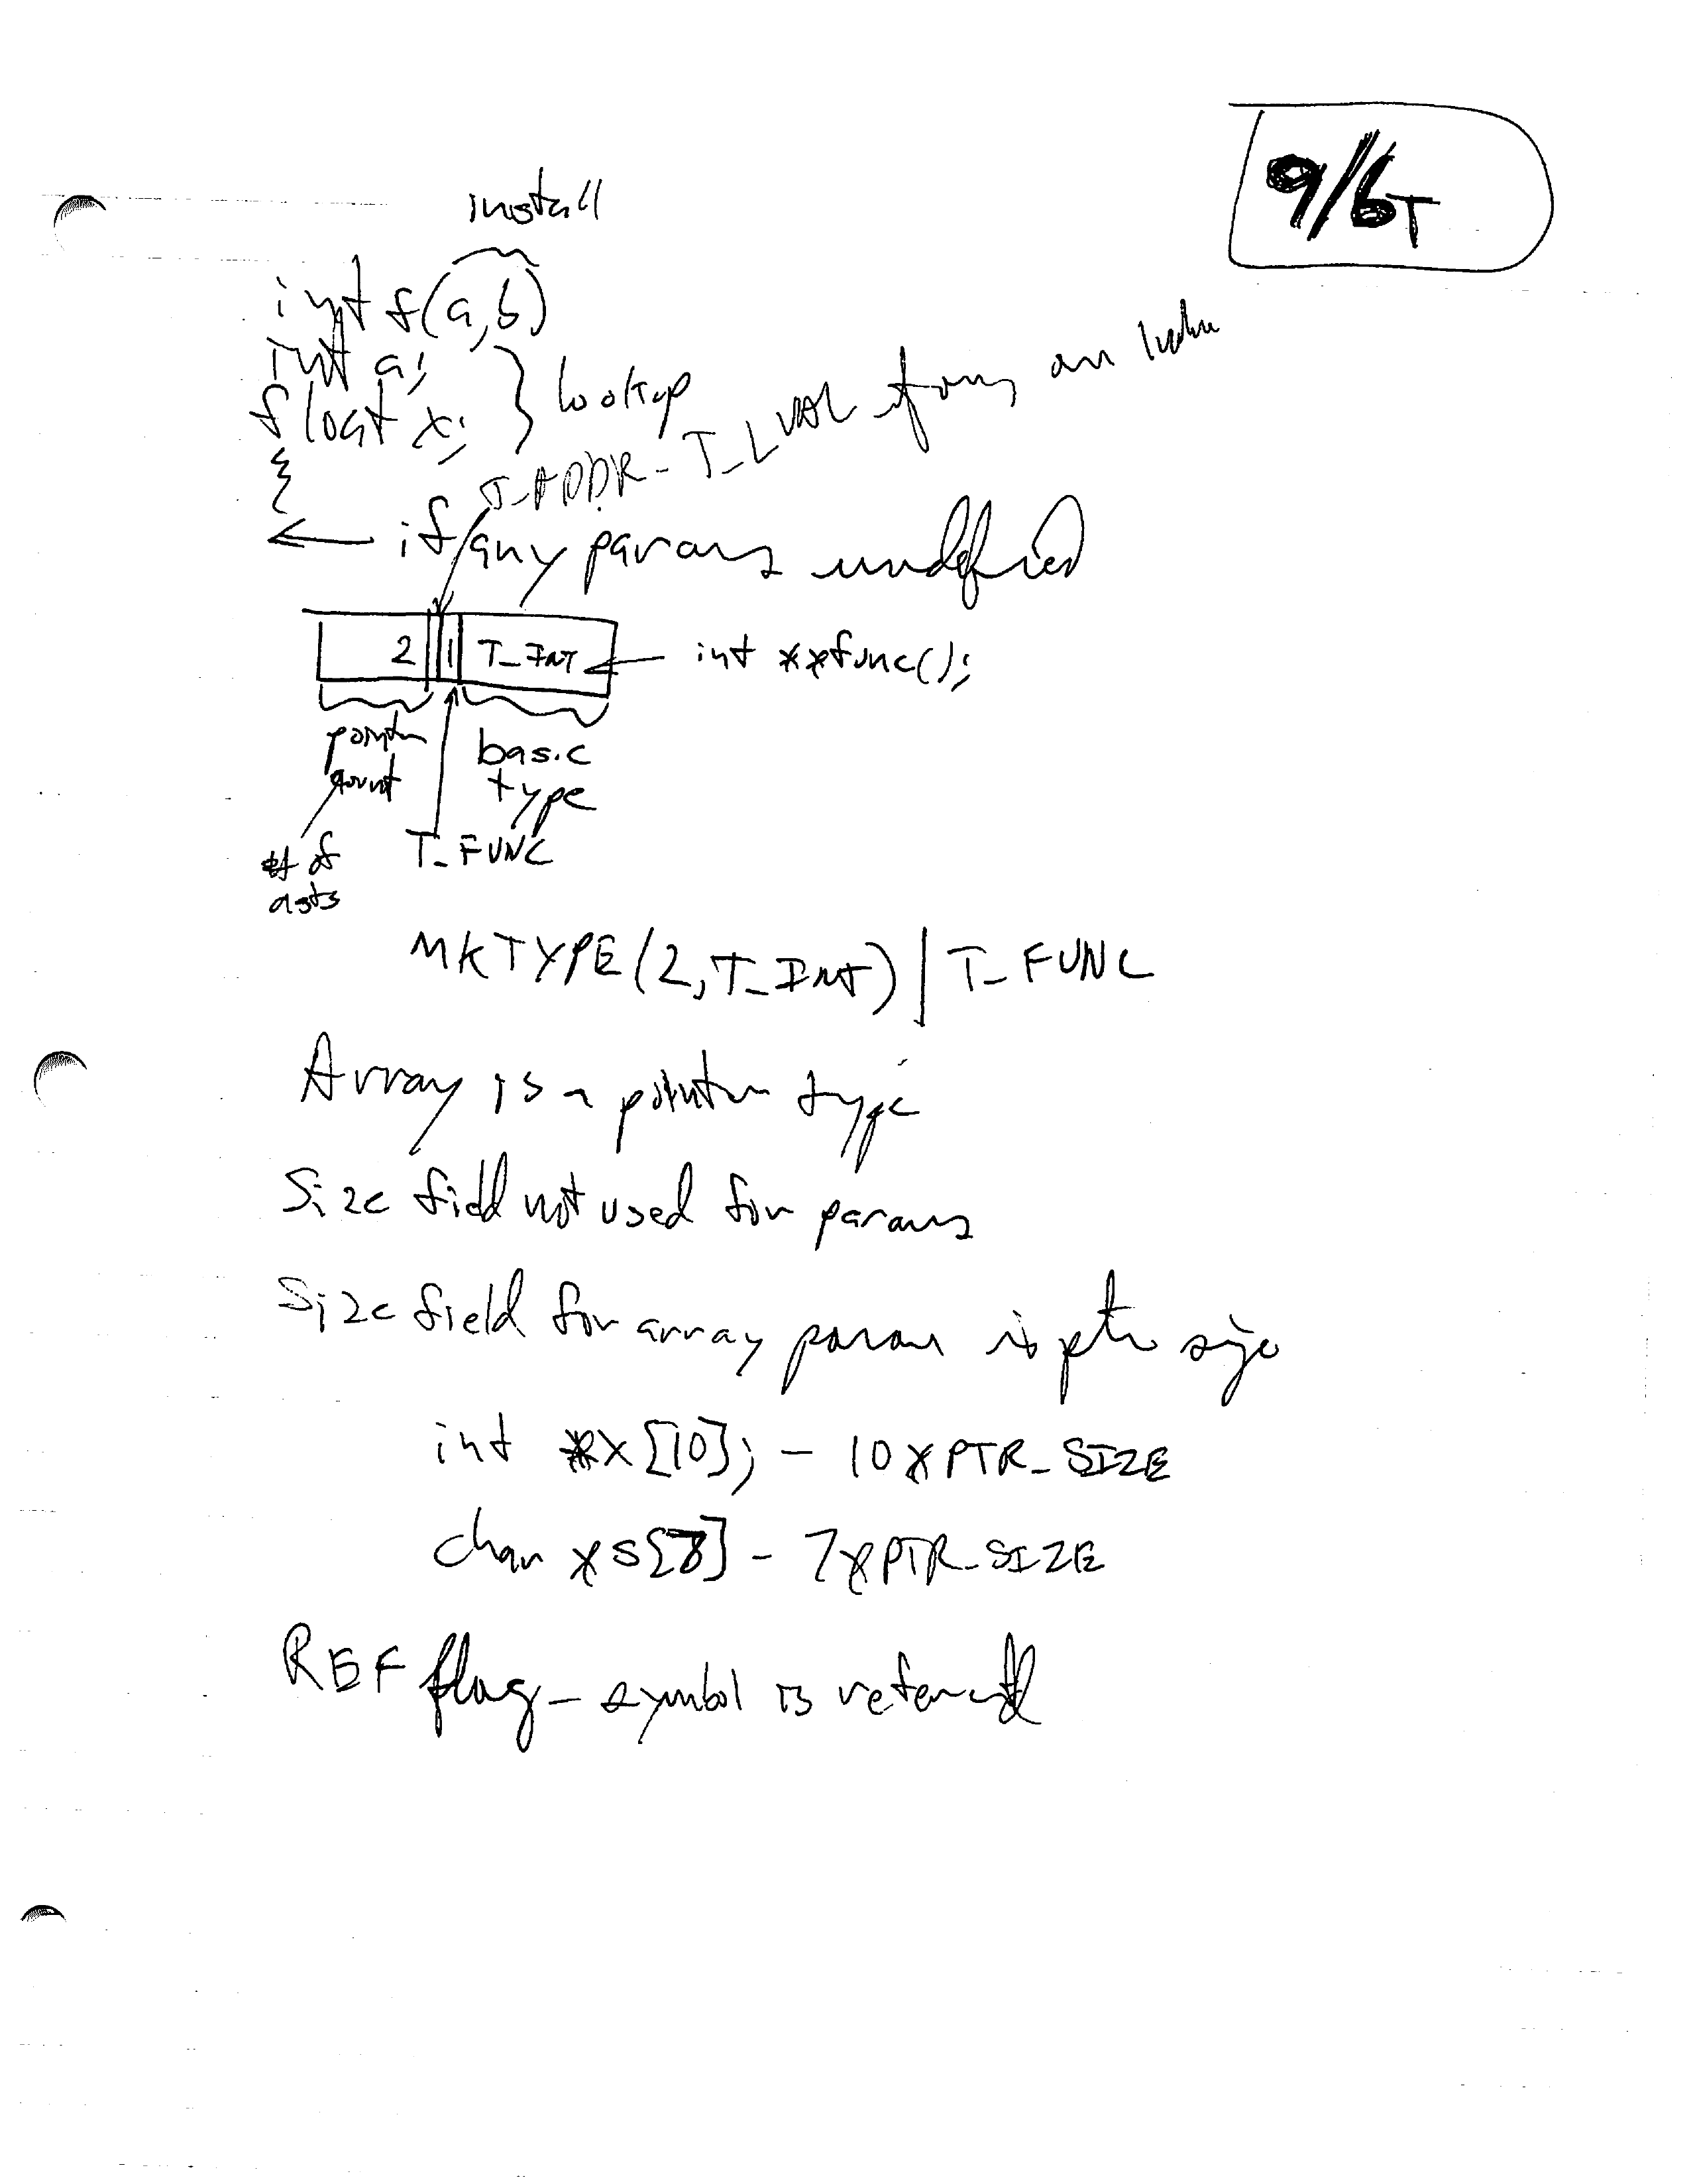 9/6T
install
int f(a,b)
int a;
float x;
} lookup
{
T_ADDR - T_LVAL if only an
← if any params undefined
2 1 T_INT ← int **func();
pointer count
basic type
# of
T_FUNC
MKTYPE(2,T_INT) | T_FUNC
Array is a pointer type
Size field not used for params
Size field for array param is ptr size
int *x[10]; - 10*PTR_SIZE
char *s[7] - 7*PTR_SIZE
REF flag - symbol is referenced